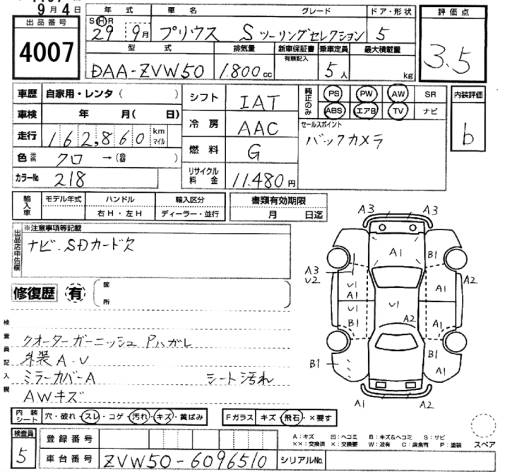 9月4日
出品番号
4007
年式 車名 グレード ドア・形状
S H R
29年 9月 プリウス Sツーリングセレクション 5
型式 排気量 新車保証書 有無記入 乗車定員 最大積載量
DAA-ZVW50 1.800cc 5人 kg
評価点
3.5
車歴 自家用・レンタ( )
車検 年 月( 日)
走行 162,860 km マイル
色 クロ→( )
カラーNo 218
シフト IAT
冷房 AAC
燃料 G
リサイクル料金 11.480円
純正のみ PS PW AW SR
ABS エアB TV ナビ
セールスポイント
バックカメラ
内装評価
b
輸入車 モデル年式 ハンドル 輸入区分
右H・左H ディーラー・並行
書類有効期限
月 日迄
出品店申告欄 ※注意事項等記載
ナビ・SDカード欠
修復歴 有 箇所
検査員記入欄
クオーターガーニッシュPハガレ
外装A・U
ミラーカバーA シート汚れ
AWキズ
A3 A3
A1 B1
A3 U2
A1 U1 A1
U1 A2
A2
B1 B1
A1 A2
内装シート 穴・破れ・スレ・コゲ・汚れ・キズ・黄ばみ
Fガラス キズ・飛石・×要す
A:キズ 凹:ヘコミ B:キズ&ヘコミ S:サビ
スペア
検査員 5
登録番号
車台番号 ZVW50-6096510 シリアルNo.